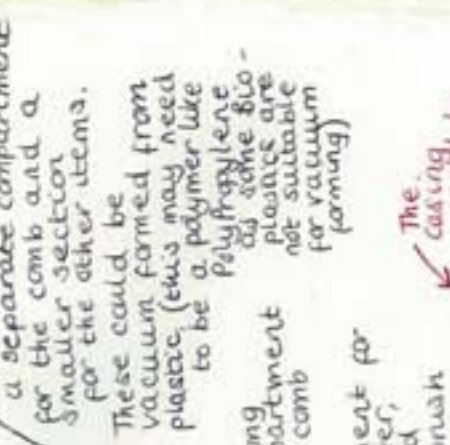 a separate compartment
for the comb and a
smaller section
for the other items.
These could be
vacuum formed from
plastic (this may need
to be a polymer like
Polypropylene
as some Bio-
plastics are
not suitable
for vacuum
forming)
ng
partment
comb
ent for
er,
d
rush
The
casing